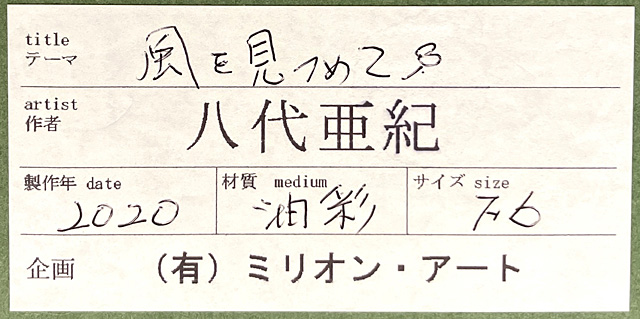 title
テーマ 風を見つめて
artist
作者 八代亜紀
製作年 date 材質 medium サイズ size
2020 油彩 F6
企画 (有)ミリオン・アート